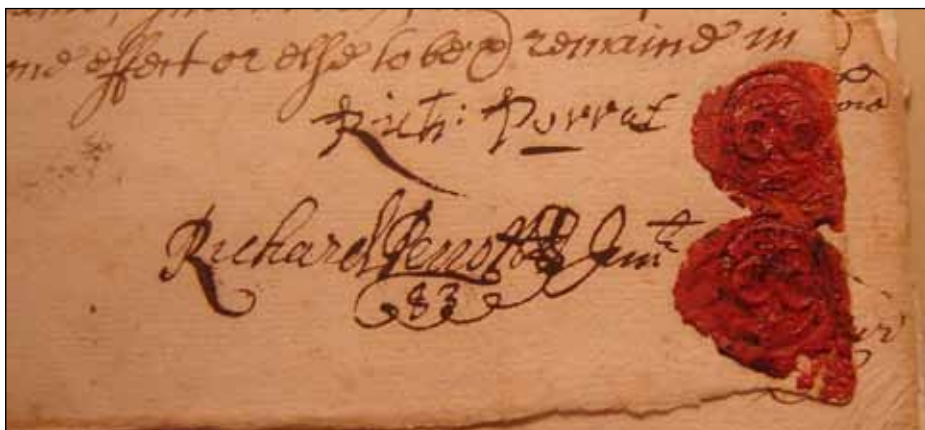 effect or else to be & remaine in
Rich: Porrat
Richard Perrott Junr
83